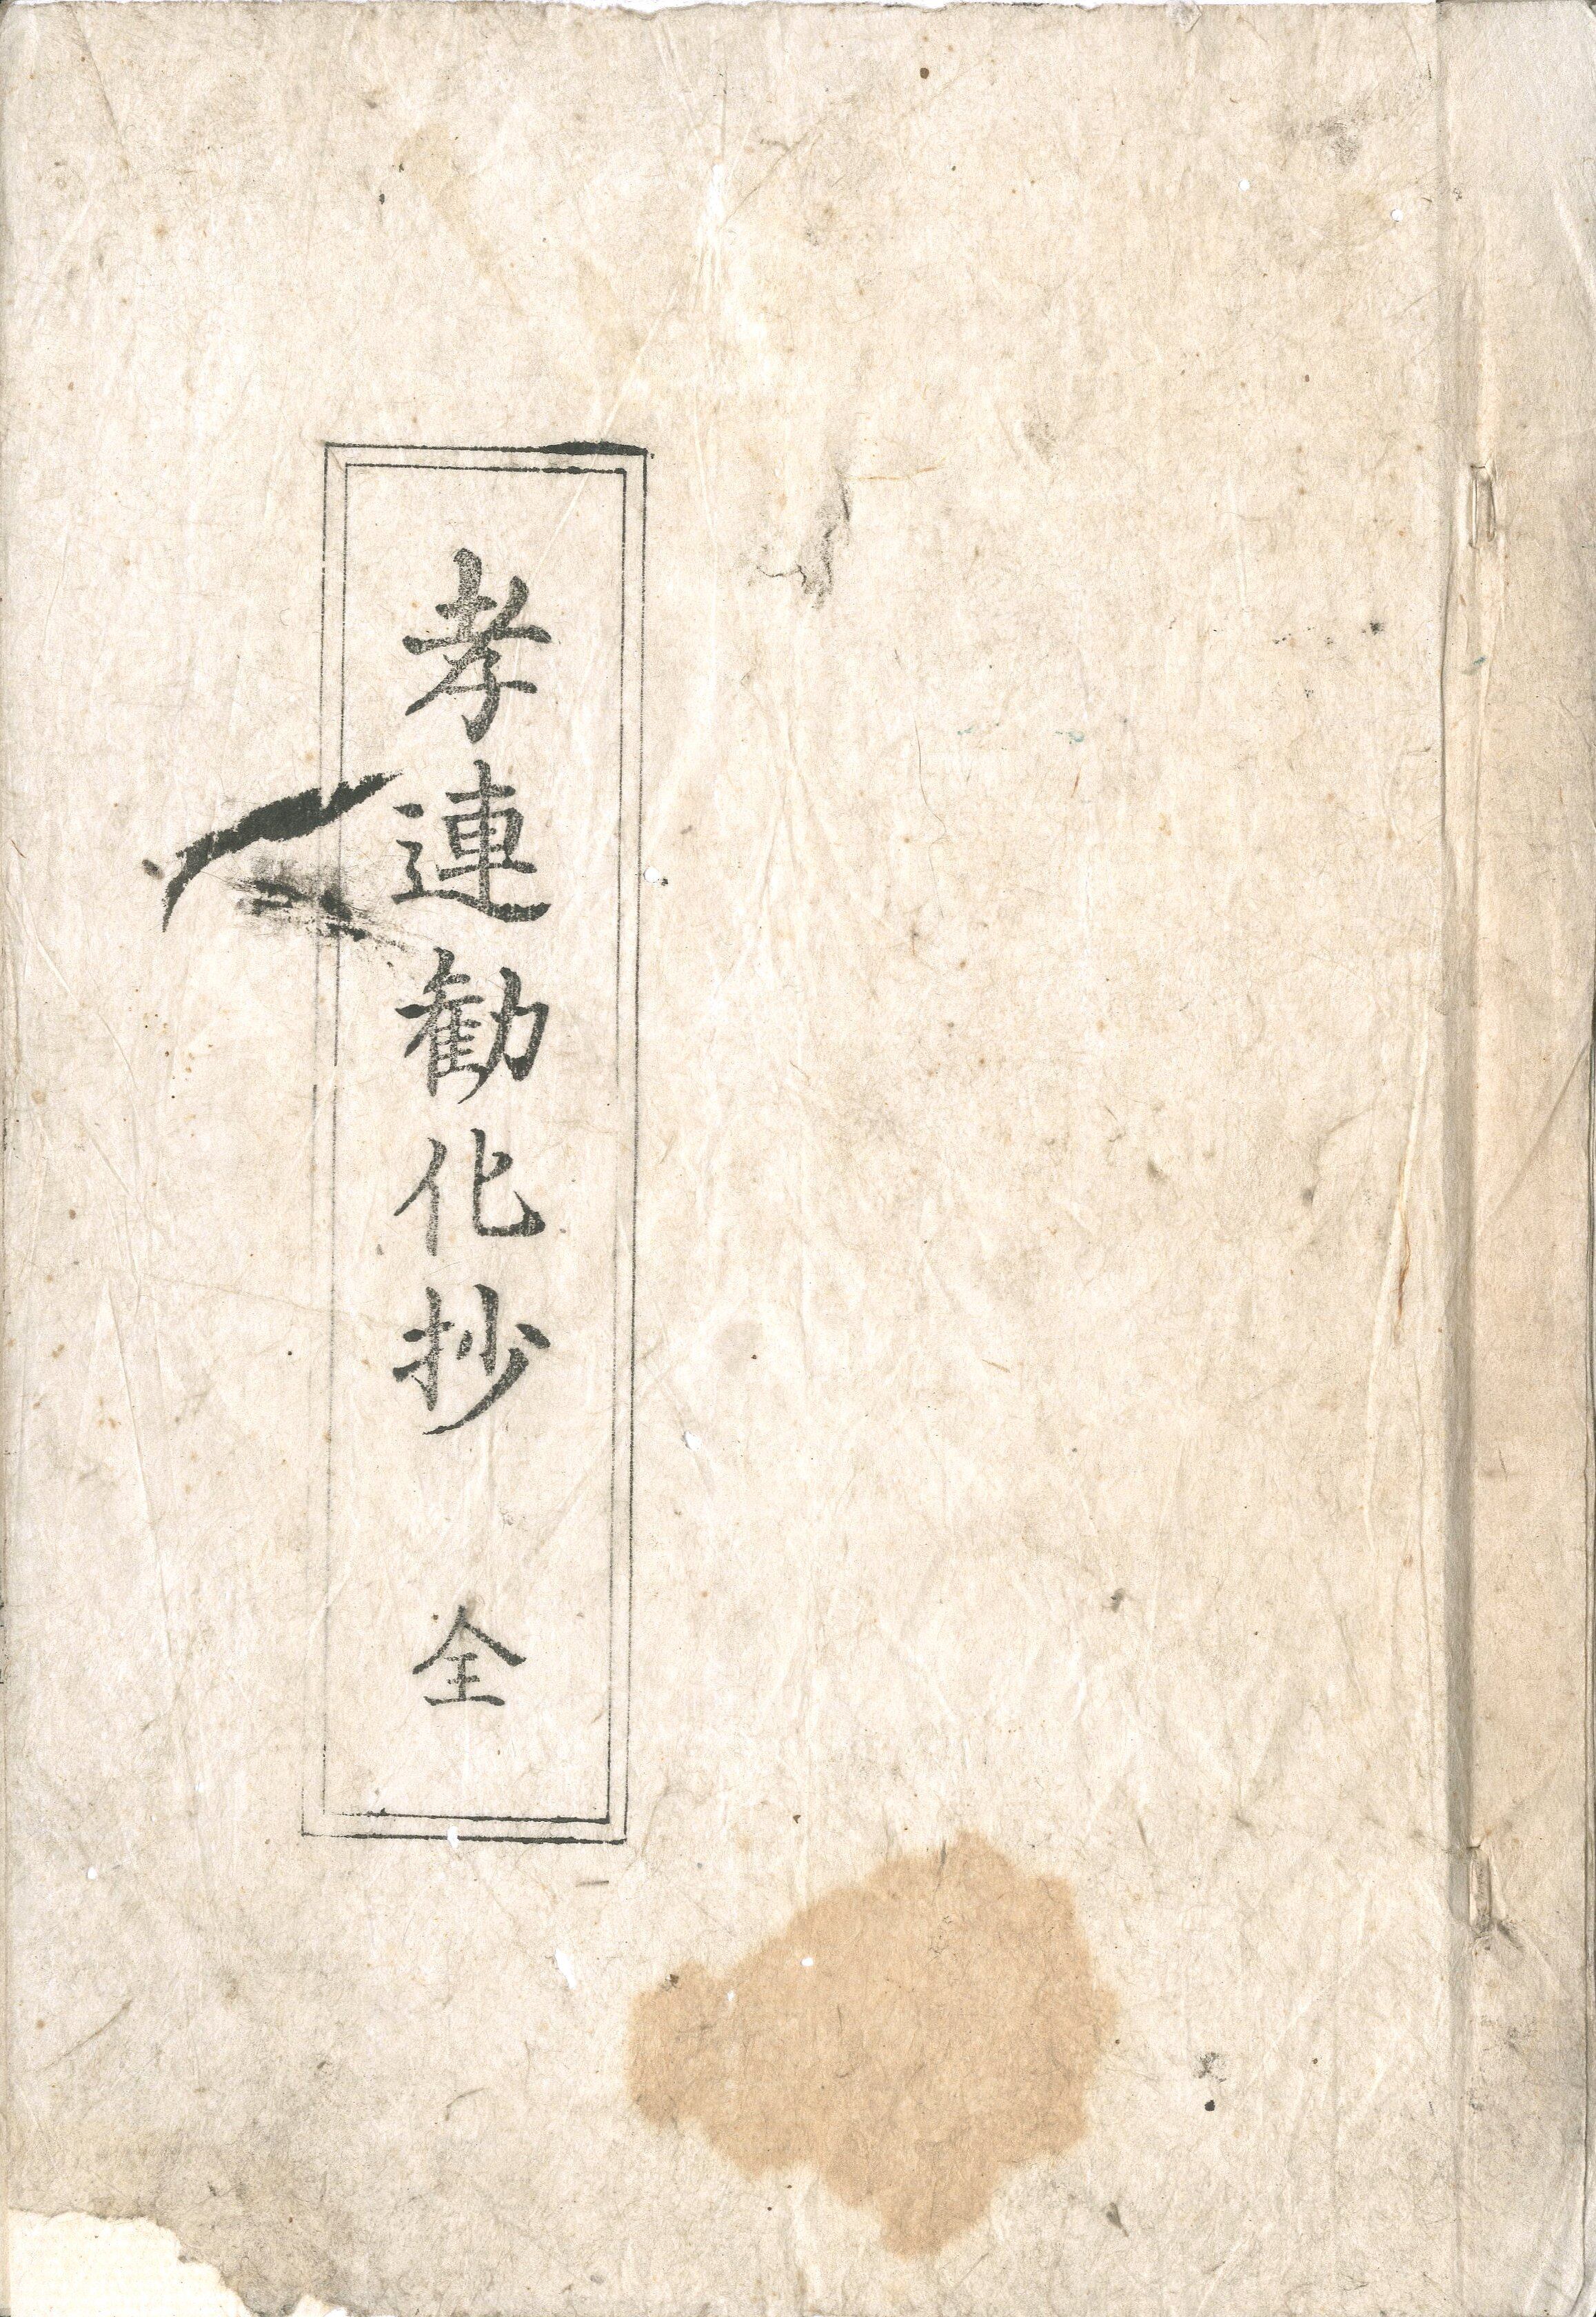 孝連勧化抄 全